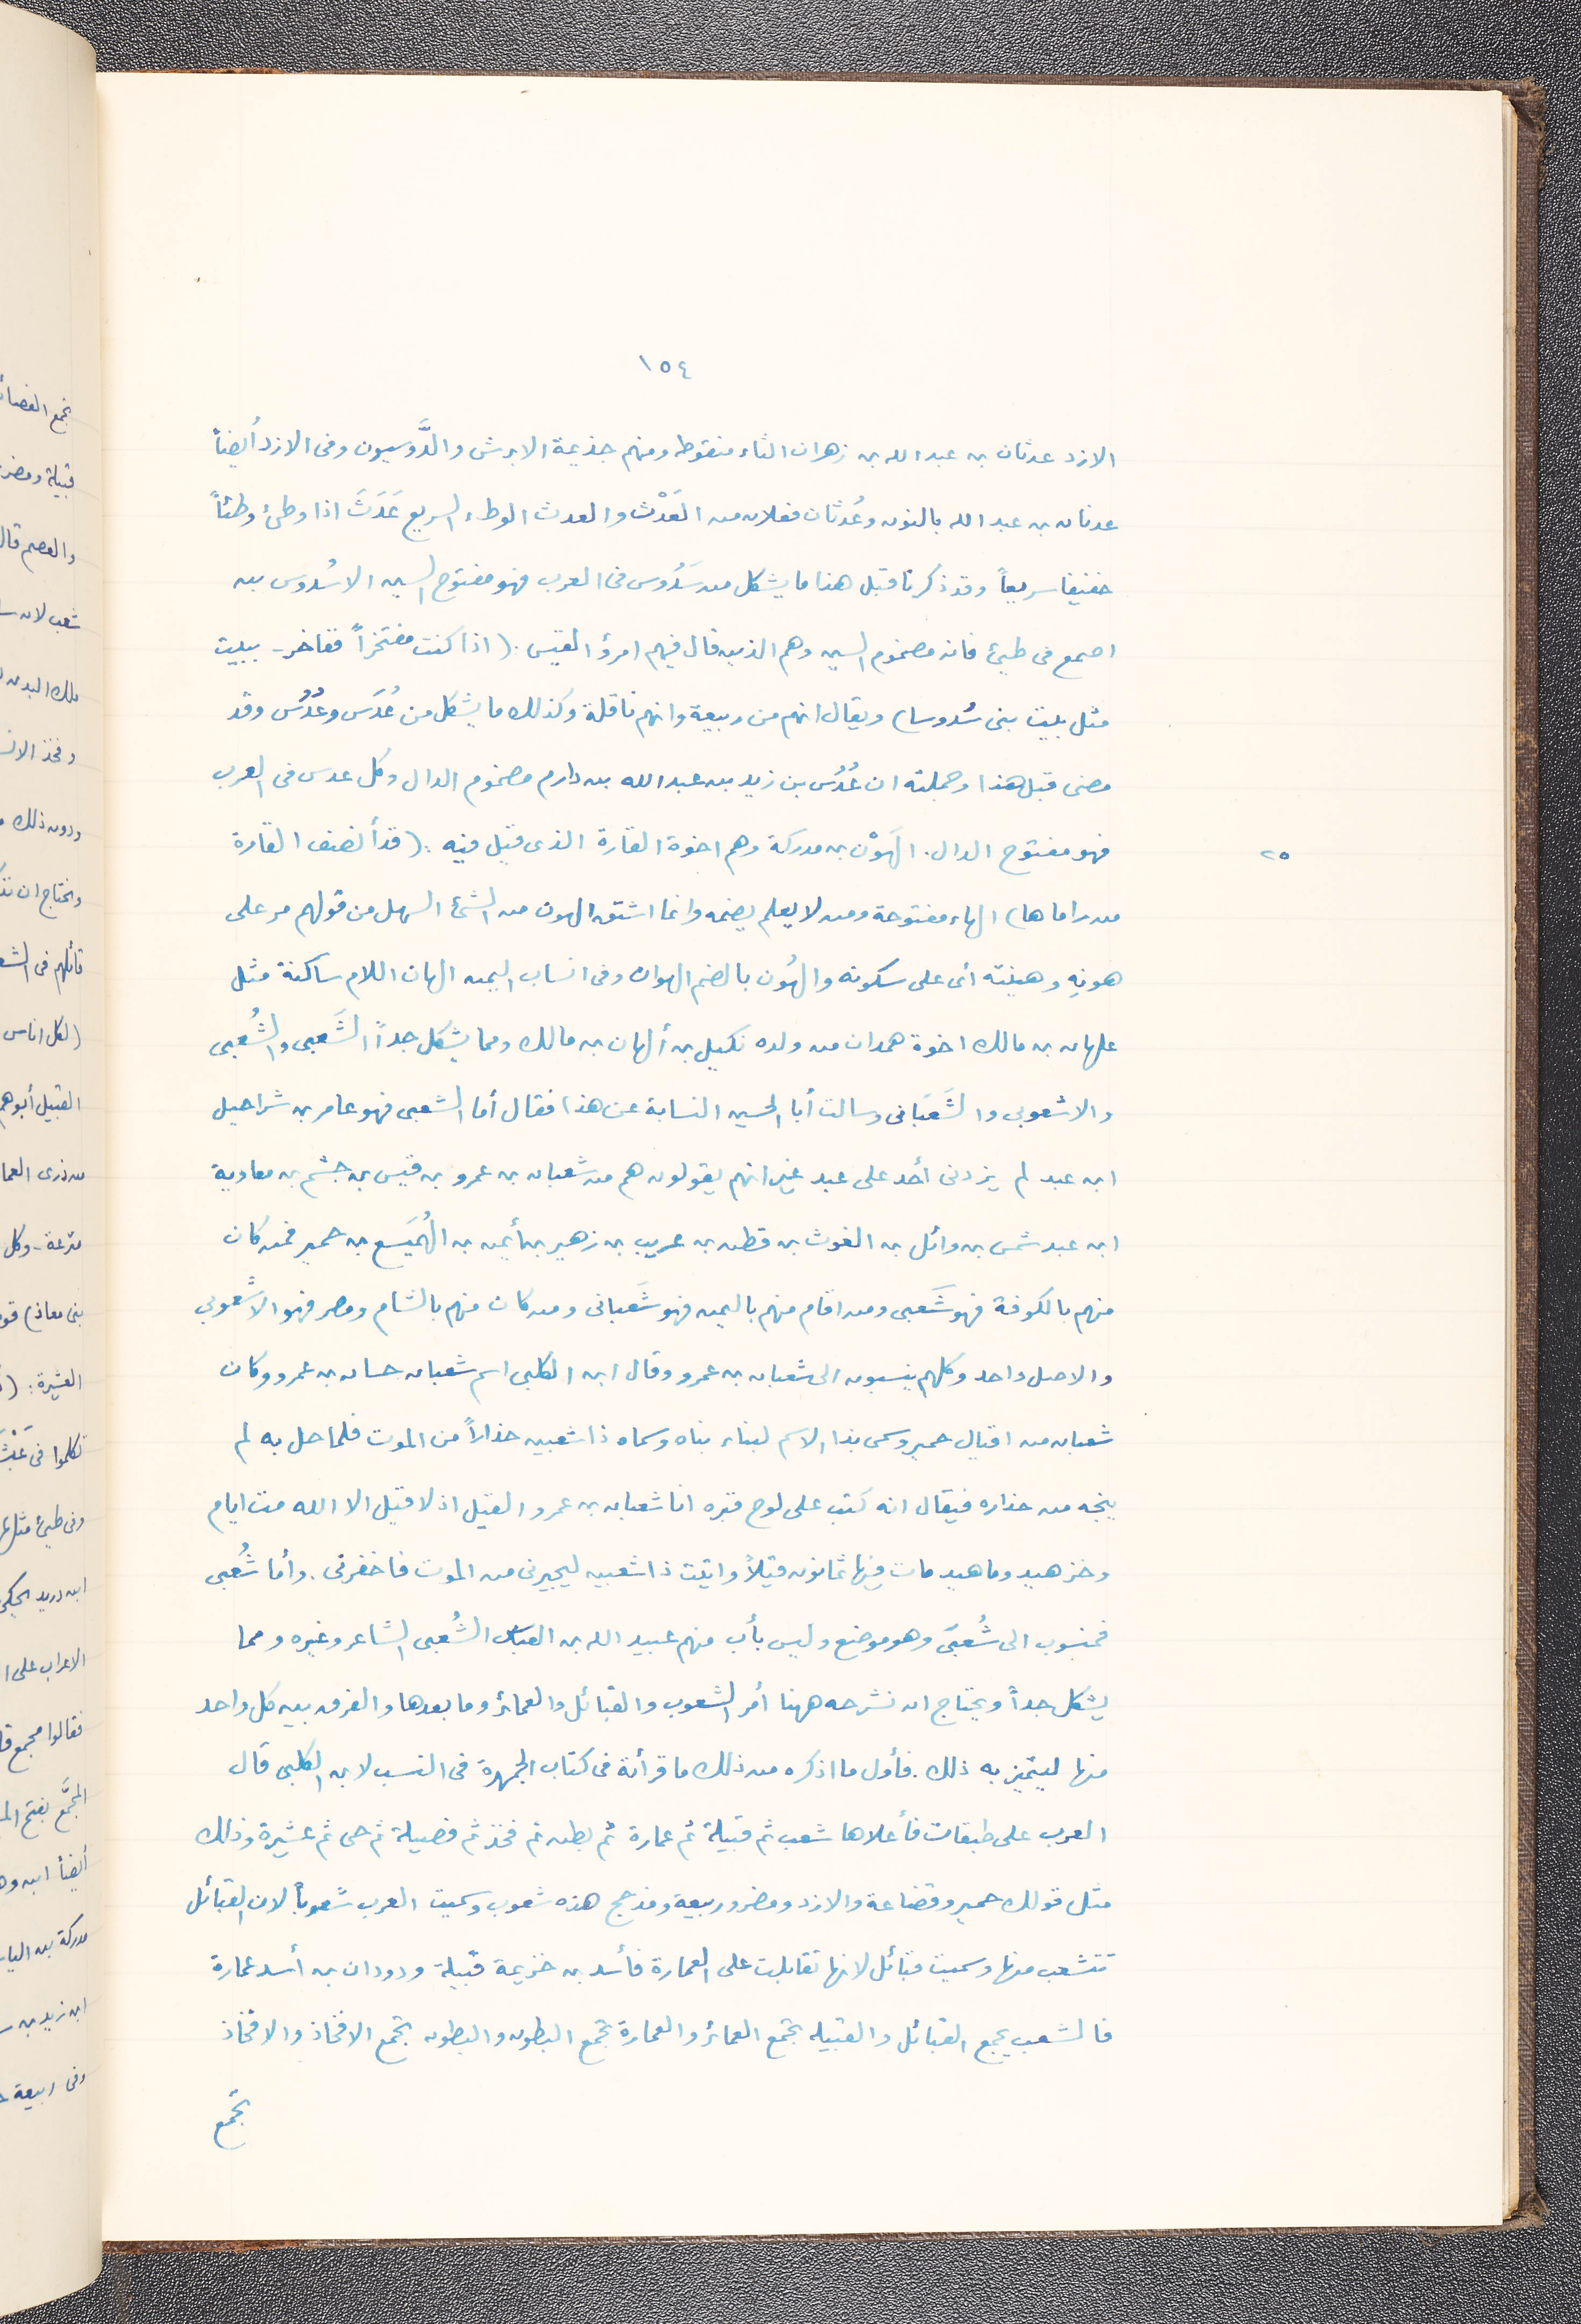 ١٥٤
الازد عدثان بن عبد الله بن زهران الثاء منقوطه ومنهم جذيمة الابرش والدَّوسيون وفى الازد أيضاً
عدنان بن عبد الله بالنون وعُدثان فعلان من العَدْث والعدث الوطء السريع عَدَثَ اذا وطئ وطئاً
خفيفا سريعاً وقد ذكرنا قبل هذا ما يشكل من سَدُوس فى العرب فهو مفتوح السين الا سُدوس بن
اصمع فى طيئ فانه مضموم السين وهم الذين قال فيهم امرؤ القيس: (اذا كنت مفتخراً ففاخر - ببيت
مثل بيت بنى سُدوسا) ويقال انهم من ربيعة وانهم ناقلة وكذلك ما يشكل من عُدَس وعُدُس وقد
مضى قبل هذا وجملته ان عُدُس بن زيد بن عبد الله بن دارم مضموم الدال وكل عدس فى العرب
فهو مفتوح الدال. الهَوْن بن مدركة وهم اخوة القارة الذى قيل فيه: (قد أنصف القارة
٢٥
من راماها) الهاء مفتوحة ومن لا يعلم يضمه وانما اشتق الهون من الشئ السهل من قولهم مر على
هونِهِ وهينته أى على سكونه والهُون بالضم الهوان وفى انساب اليمن الهان اللام ساكنة مثل
علهان بن مالك اخوة همدان من ولده نكيل بن ألهان بن مالك ومما يشكل جداً الشَعبى والشُعبى
والاشعوبى والشَعبَانى وسالت أبا الحسين النسابة عن هذا فقال أما الشعبى فهو عامر بن شراحيل
ابن عبد لم يزدنى أحد على عبد غير انهم يقولون هم من شعبان بن عمرو بن قيس بن جشم بن معاوية
ابن عبد شمس بن وائل بن الغوث بن قطن بن عريب بن زهير بن أيمن بن الهُمَيسع بن حمير فمن كان
منهم بالكوفة فهو شَعبى ومن اقام منهم باليمن فهو شَعبانى ومن كان منهم بالشام ومصر فهو الاشعوبى
والاصل واحد وكلهم ينسبون الى شعبان بن عمرو وقال ابن الكلبى اسم شعبان حسان بن عمرو وكان
شعبان من اقيال حمير وسمى بذا الاسم لبناء بناه وسماه ذا شعبين حذاراً من الموت فلما حل به لم
ينجه من حذاره فيقال انه كتب على لوح قبره انا شعبان بن عمرو القيل اذ لا قيل الا الله مت ايام
وخز هيد وما هيد مات فيها ثمانون قيلاً واتيت ذا شعبين ليجيرنى من الموت فاخفرنى. وأما شُعبى
فمنسوب الى شُعبَى وهو موضع وليس بأب منهم عبيد الله بن العباس الشُعبى الشاعر وغيره ومما
يشكل جداً ويحتاج ان نشرحه ههنا أمر الشعوب والقبائل والعمائر وما بعدها والفرق بين كل واحد
منها ليتميز به ذلك. فأول ما اذكره من ذلك ما قرأته فى كتاب الجمهرة فى النسب لابن الكلبى قال
العرب على طبقات فأعلاها شعب ثم قبيلة ثم عمارة ثم بطن ثم فخذ ثم فصيلة ثم حى ثم عشيرة وذلك
مثل قولك حمير وقضاعة والازد ومضر وربيعة ومذحج هذه شعوب وسميت العرب شعوباً لان القبائل
تتشعب منها وسميت قبائل لانها تقابلت على العمارة فأسد بن خزيمة قبيلة ودودان بن أسد عمارة
فالشعب يجمع القبائل والقبيلة تجمع العمائر والعمارة تجمع البطون والبطون تجمع الافخاذ والافخاذ
تجمع